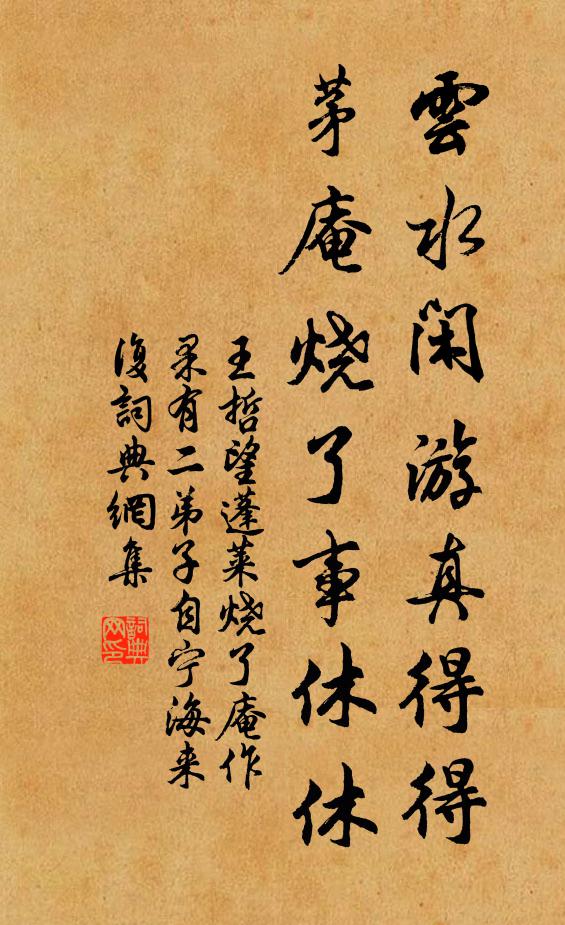 雲水闲游真得得
茅庵烧了事休休
王哲望蓬莱烧了庵作
果有二弟子自宁海来
復詞典網集
詞典
网印